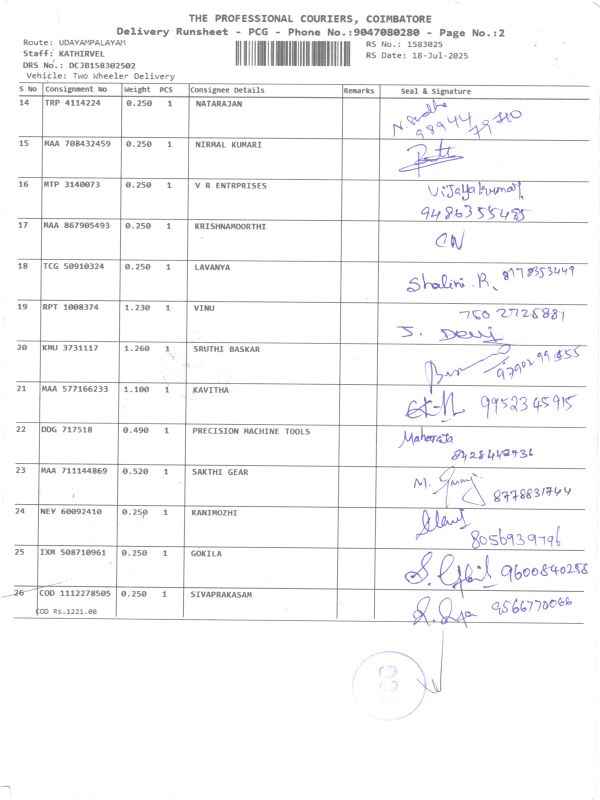 THE PROFESSIONAL COURIERS, COIMBATORE
Delivery Runsheet - PCG - Phone No.:9047080280 - Page No.:2
Route: UDAYAMPALAYAM RS No.: 1583025
Staff: KATHIRVEL RS Date: 18-Jul-2025
DRS No.: DCJB158302502
Vehicle: Two Wheeler Delivery
S No Consignment No Weight PCS Consignee Details Remarks Seal & Signature
14 TRP 4114224 0.250 1 NATARAJAN
N. Sudha
98944 79710
15 MAA 708432459 0.250 1 NIRMAL KUMARI
16 MTP 3140073 0.250 1 V R ENTRPRISES Vijayakumar
9486355485
17 MAA 867905493 0.250 1 KRISHNAMOORTHI
CN
18 TCG 50910324 0.250 1 LAVANYA
Shalini. R, 8778353449
19 RPT 1008374 1.230 1 VINU 750 2728881
S. Devi
20 KMU 3731117 1.260 1 SRUTHI BASKAR
21 MAA 577166233 1.100 1 KAVITHA
9952345915
22 DDG 717518 0.490 1 PRECISION MACHINE TOOLS Maharaja
23 MAA 711144869 0.520 1 SAKTHI GEAR
8778831744
24 NEY 60092410 0.250 1 KANIMOZHI
8056939796
25 IXM 508710961 0.250 1 GOKILA
9600840288
26 COD 1112278505 0.250 1 SIVAPRAKASAM
9566770066
COD Rs.1221.00